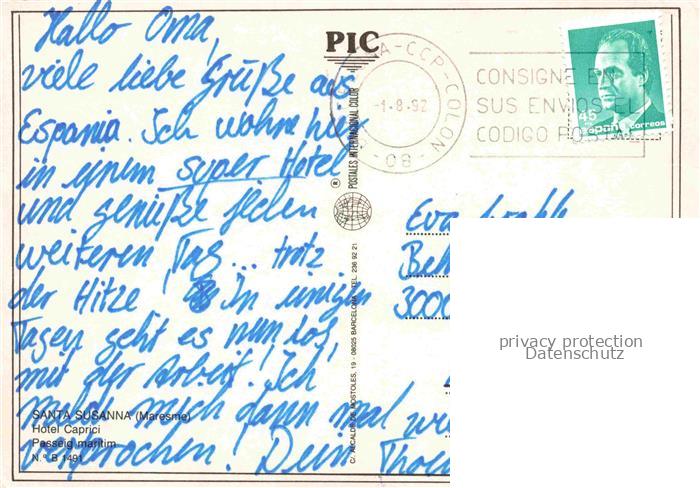 Hallo Oma,
viele liebe Grüße aus
Espania. Ich wohne hier
in einem super Hotel
und genieße jeden
weiteren Tag... trotz
der Hitze! In einigen
Tagen geht es nun los,
mit der Arbeit! Ich
melde mich dann mal wie
versprochen! Dein
SANTA SUSANNA (Maresme)
Hotel Caprici
Passeig maritim
N.º B 1491
PIC
® POSTALES INTERNACIONAL COLOR
C/. ALCALDE DE MOSTOLES, 19 - 08025 BARCELONA - TEL. 236 92 21
A-CCP-COLON
-1.-8.-92
-08-
CONSIGNE EN
SUS ENVIOS EL
CODIGO POSTAL
45
España correos
Eva
3000
privacy protection
Datenschutz